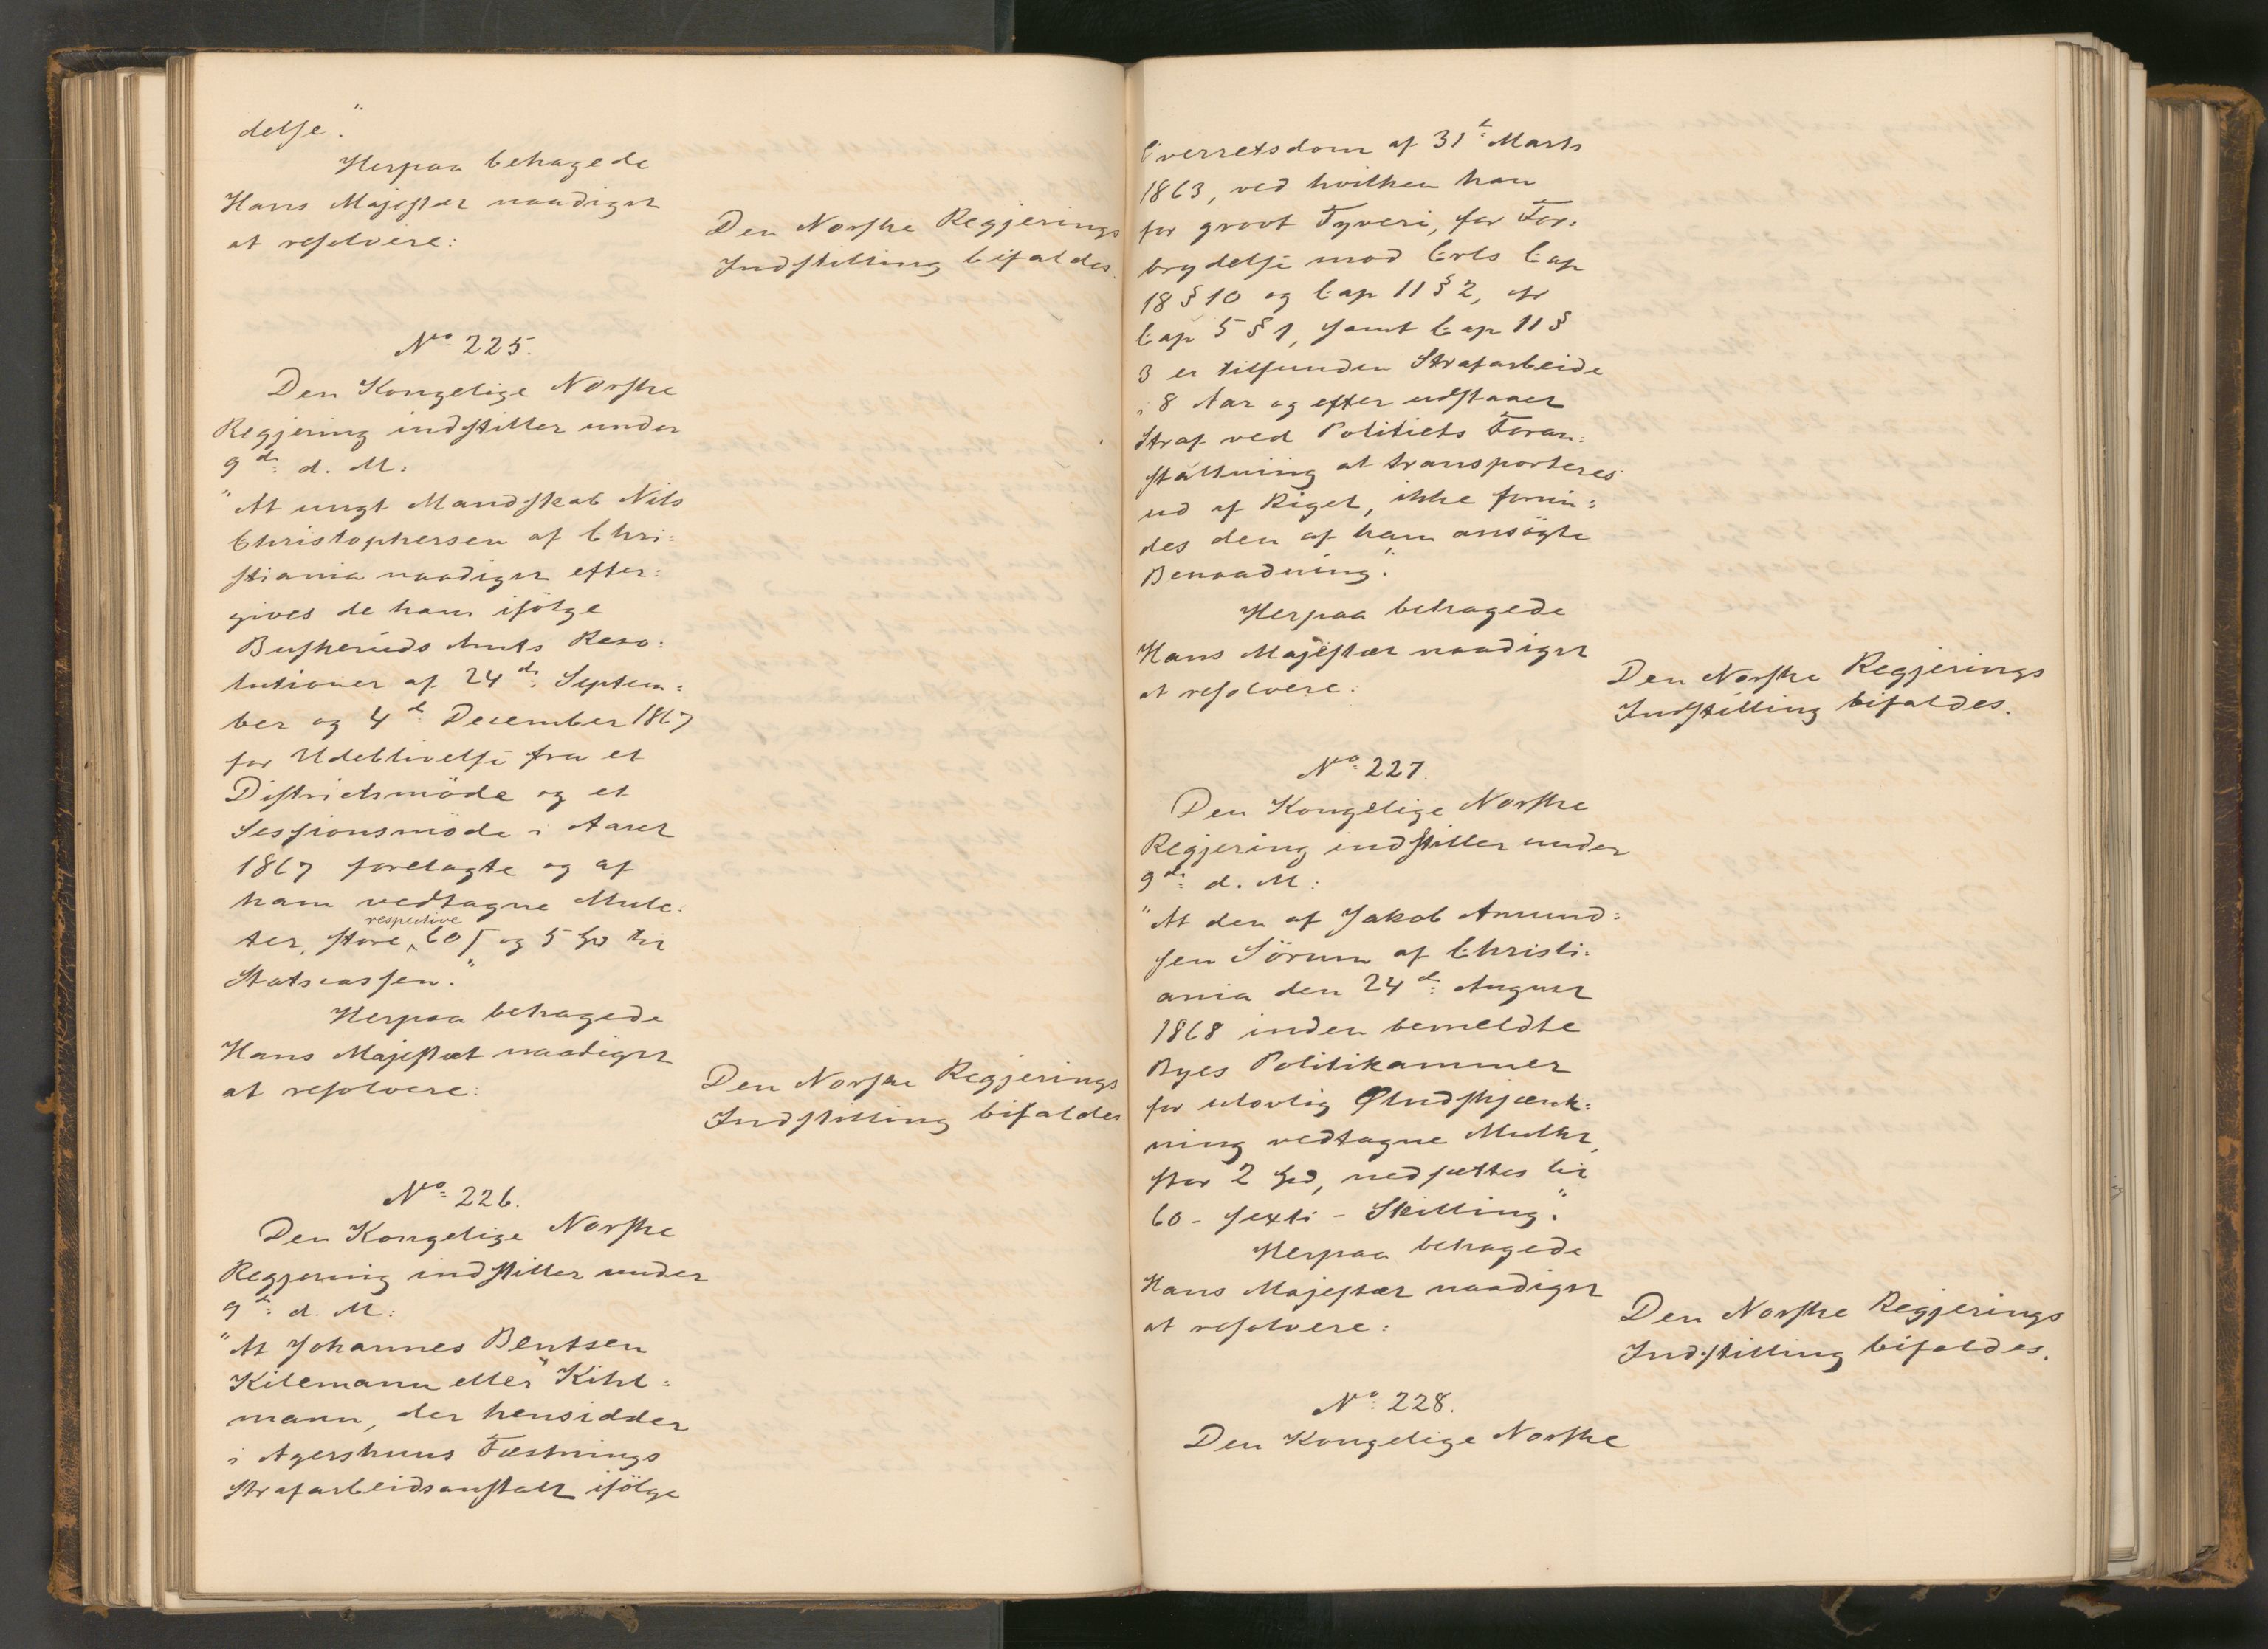 delse."
Herpaa behagede
Hans Majestæt naadigst
at resolvere:
Den Norske Regjerings
Indstilling bifaldes.
No 225.
Den Kongelige Norske
Regjering indstiller under
9de d. M:
"At ungt Mandskab Nils
Christophersen af Chri=
stiania naadigst efter=
gives de ham ifölge
Buskeruds Amts Reso=
lutioner af 24de Septem=
ber og 4de December 1867
for Udeblivelse fra et
Districtsmöde og et
Sessionsmöde i Aaret
1867 forelagte og af
ham vedtagne Mulc=
ter, store respective 60 ſ og 5 Spd til
Statscassen."
Herpaa behagede
Hans Majestæt naadigst
at resolvere:
Den Norske Regjerings
Indstilling bifaldes.
No 226.
Den Kongelige Norske
Regjering indstiller under
9de d. M:
"At Johannes Bentsen
Kilemann eller Kihl=
mann, der hensidder
i Agershuus Fæstnings
Strafarbeidsanstalt ifölge
Overretsdom af 31te Marts
1863, ved hvilken han
for grovt Tyveri, for For=
brydelse mod Crls Cap
18 § 10 og Cap 11 § 2, cfr
Cap 5 § 1, samt Cap 11 §
3 er tilfunden Strafarbeide
i 8 Aar og efter udstaaet
Straf ved Politiets Foran=
staltning at transporteres
ud af Riget, ikke forun=
des den af ham ansögte
Benaadning."
Herpaa behagede
Hans Majestæt naadigst
at resolvere:
Den Norske Regjerings
Indstilling bifaldes.
No 227.
Den Kongelige Norske
Regjering indstiller under
9de d. M:
"At den af Jakob Amund=
sen Sörum af Christi=
ania den 24de August
1868 inden bemeldte
Byes Politikammer
for ulovlig Øludskjænk=
ning vedtagne Mulkt,
stor 2 Spd, nedsættes til
60 - sexti - Skilling."
Herpaa behagede
Hans Majestæt naadigst
at resolvere:
Den Norske Regjerings
Indstilling bifaldes.
No 228.
Den Kongelige Norske